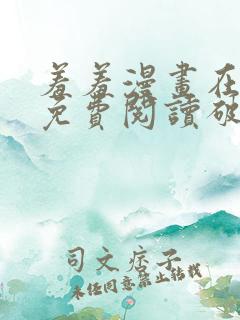 羞羞漫畫在
免費閱讀破
司文痞子
未经同意禁止转载